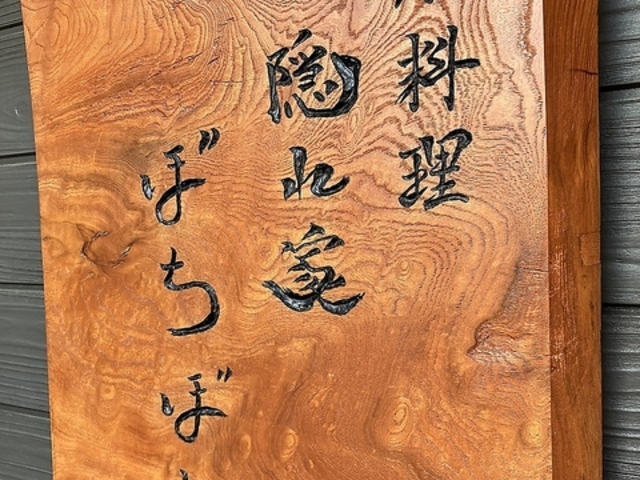 料理
隠れ家
ぼちぼ